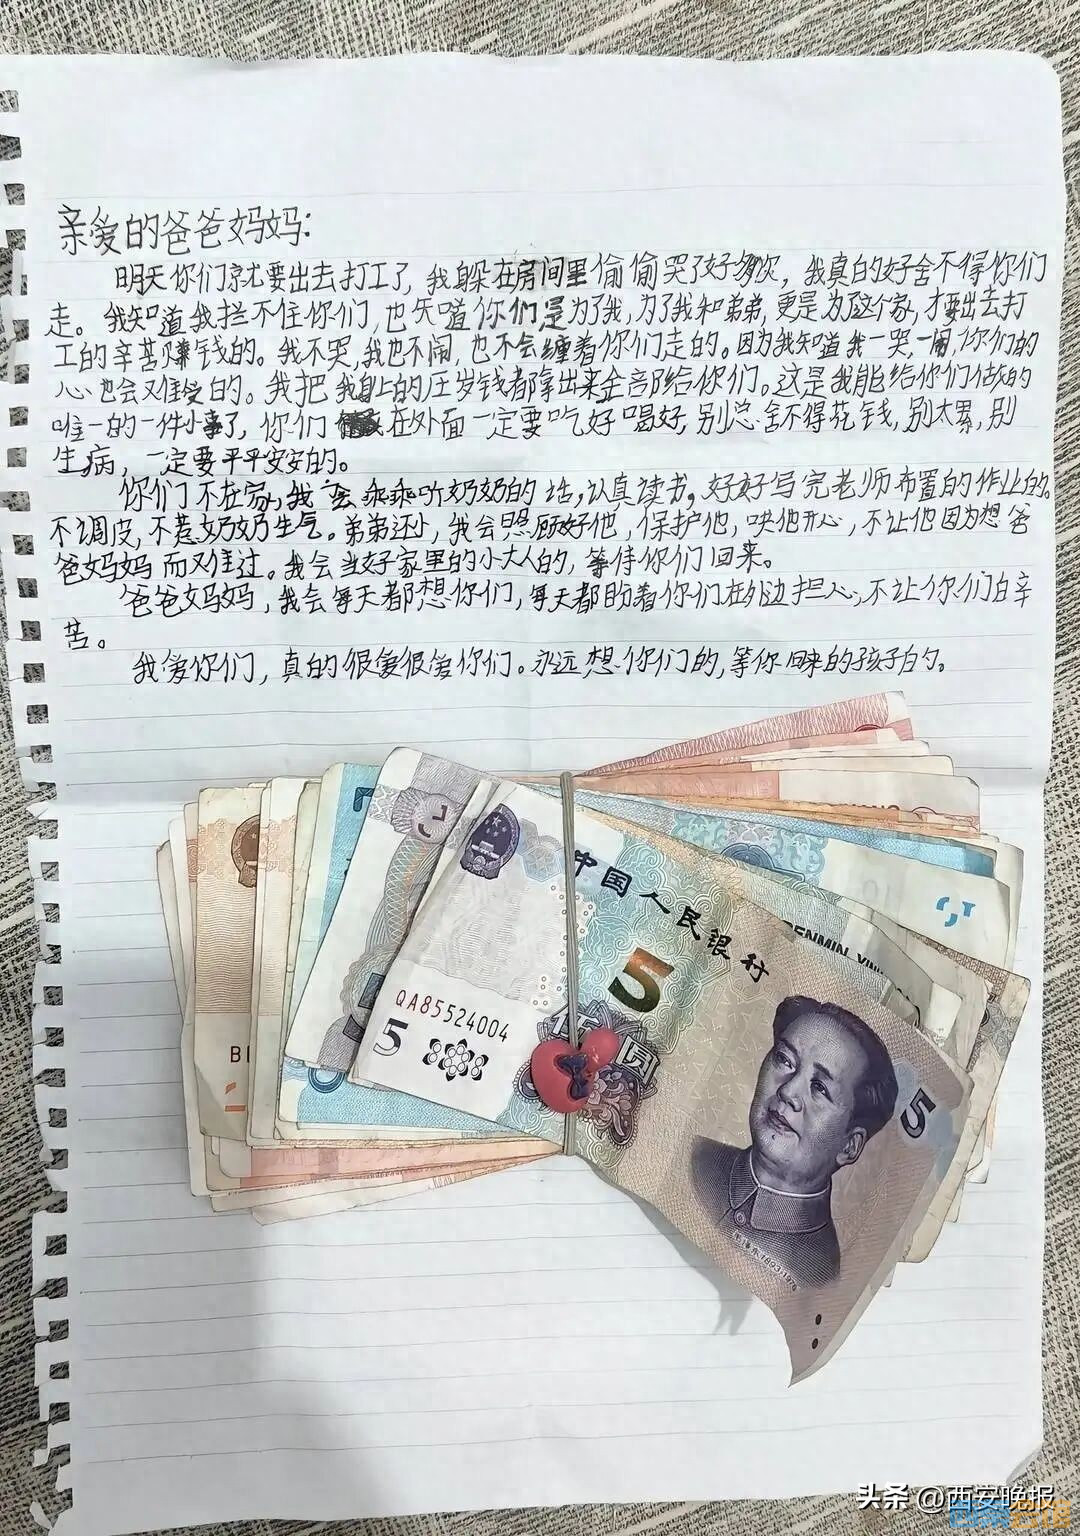 亲爱的爸爸妈妈:
明天你们就要出去打工了,我躲在房间里偷偷哭了好多次,我真的好舍不得你们
走。我知道我拦不住你们,也知道你们是为了我,为了我和弟弟,更是为了这个家,才要出去打
工的辛苦赚钱的。我不哭,我也不闹,也不会缠着你们走的。因为我知道我一哭,一闹,你们的
心也会难受的。我把我身上的压岁钱都拿出来全部给你们。这是我能给你们做的
唯一的一件小事了,你们在外面一定要吃好喝好,别总舍不得花钱,别太累,别
生病,一定要平平安安的。
你们不在家,我会乖乖听奶奶的话,认真读书,好好写完老师布置的作业的。
不调皮,不惹奶奶生气。弟弟还小,我会照顾好他,保护他,哄他开心,不让他因为想爸
爸妈妈而难过。我会当好家里的小大人的,等待你们回来。
爸爸妈妈,我会每天都想你们,每天都盼着你们在外边担心,不让你们白辛
苦。
我爱你们,真的很爱很爱你们。永远想你们的,等你回来的孩子的。
中国人民银行
5
伍圆
QA85524004
5
5
头条 @西安晚报